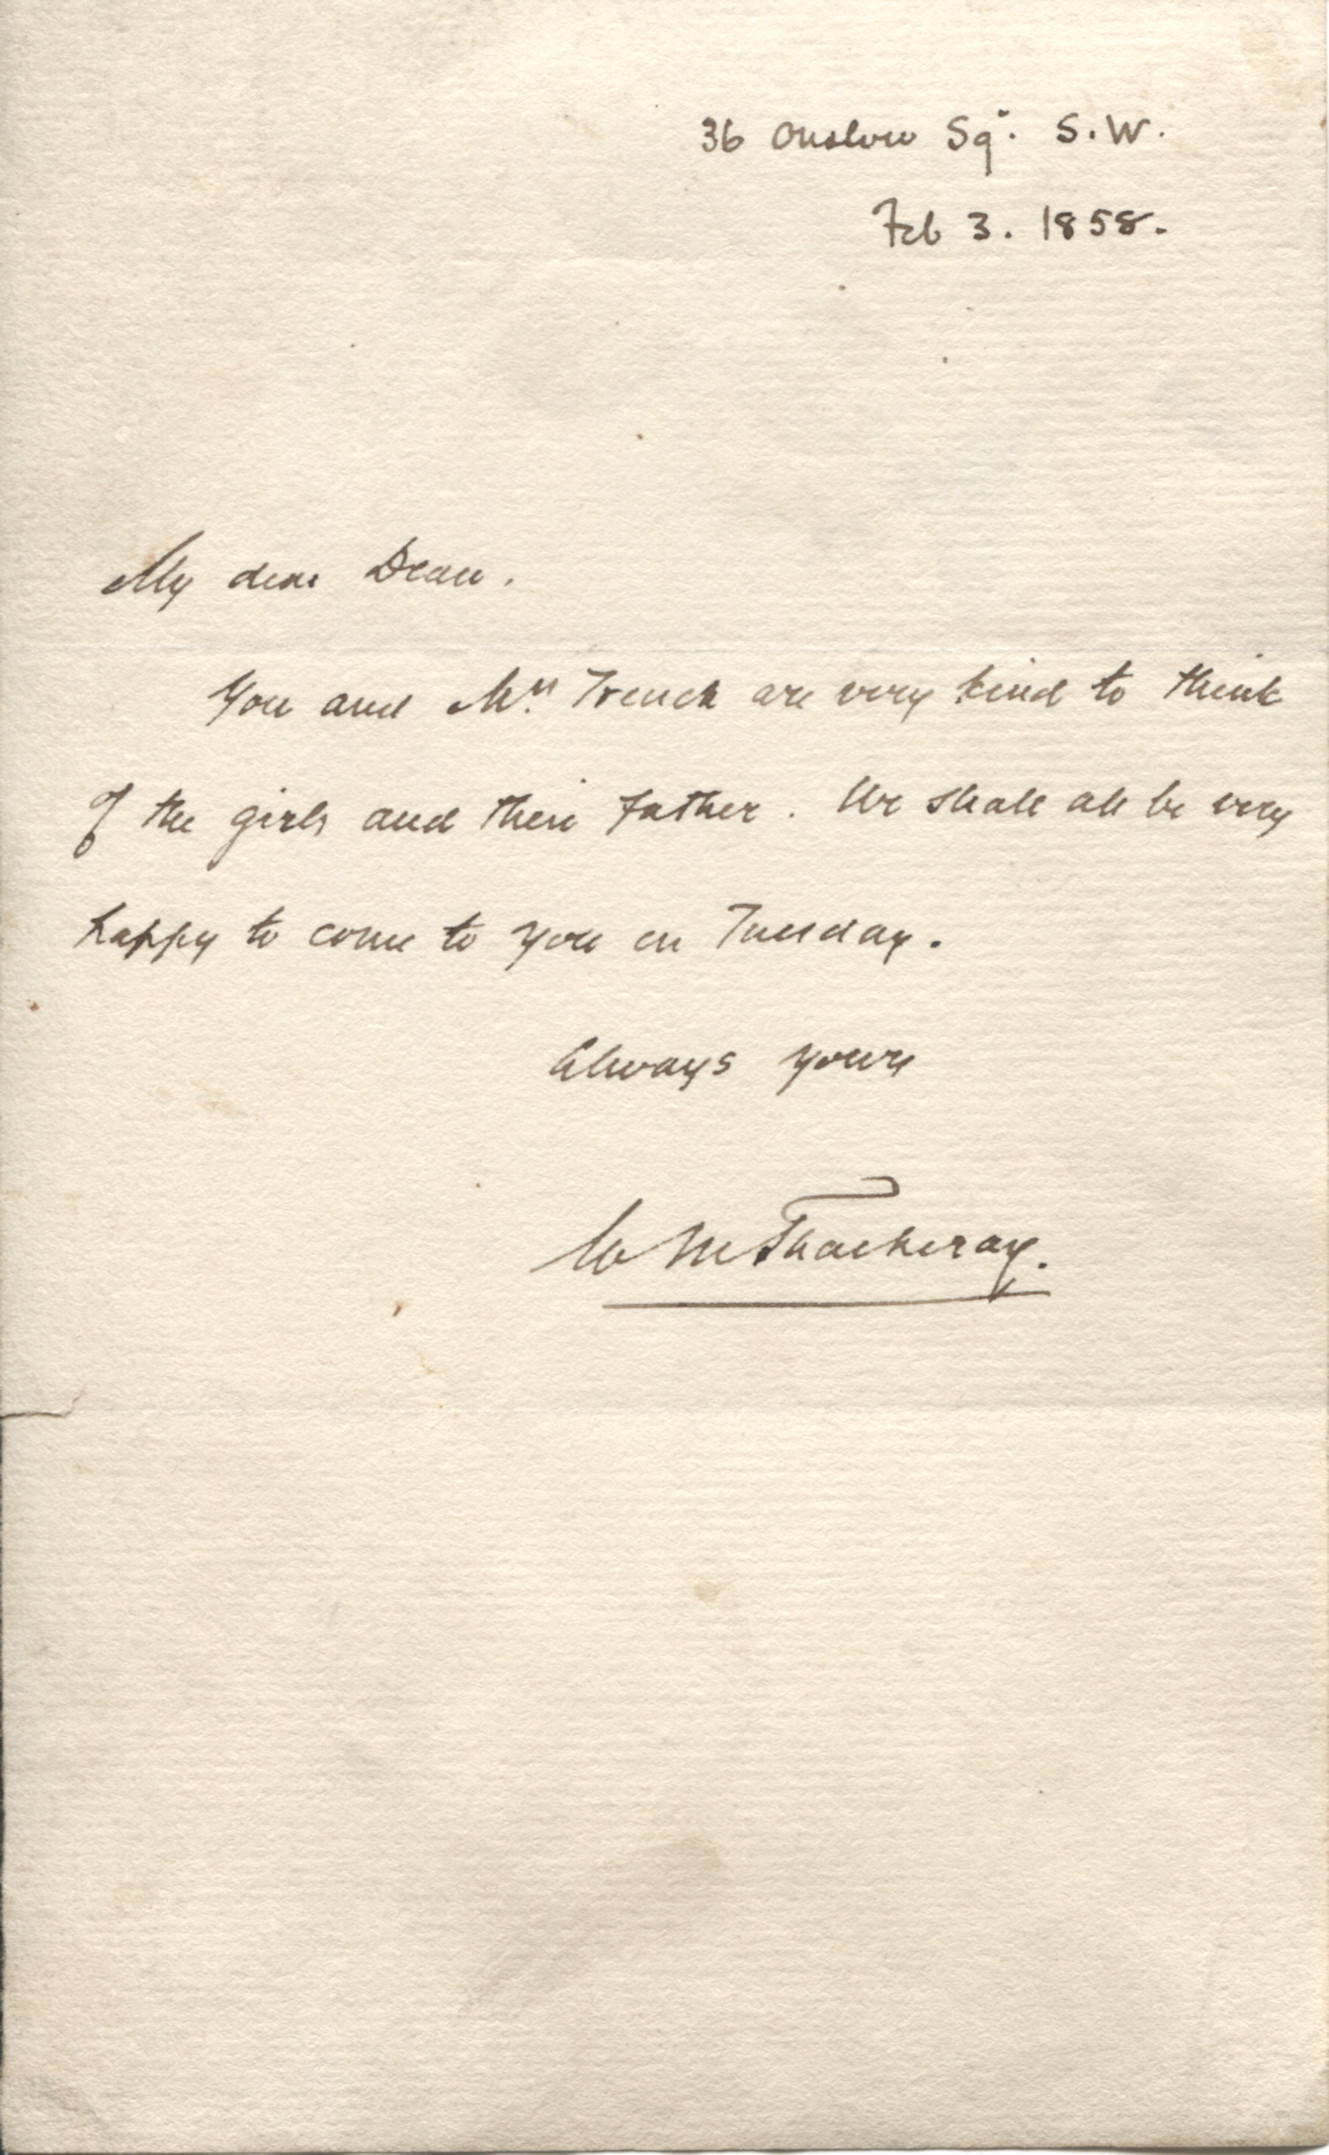 36 Onslow Sq. S.W.
Feb 3. 1858.
My dear Dean.
You and Mrs. Trench are very kind to think
of the girls and their father. We shall all be very
happy to come to you on Tuesday.
Always yours
W M Thackeray.